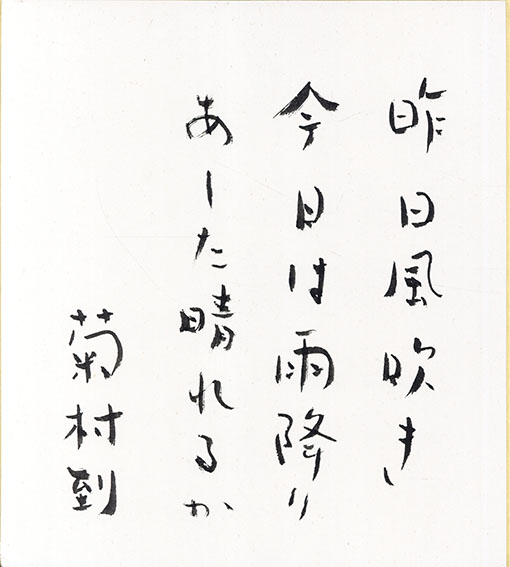 昨日風吹き
今日は雨降り
あーた晴れるか
菊村到